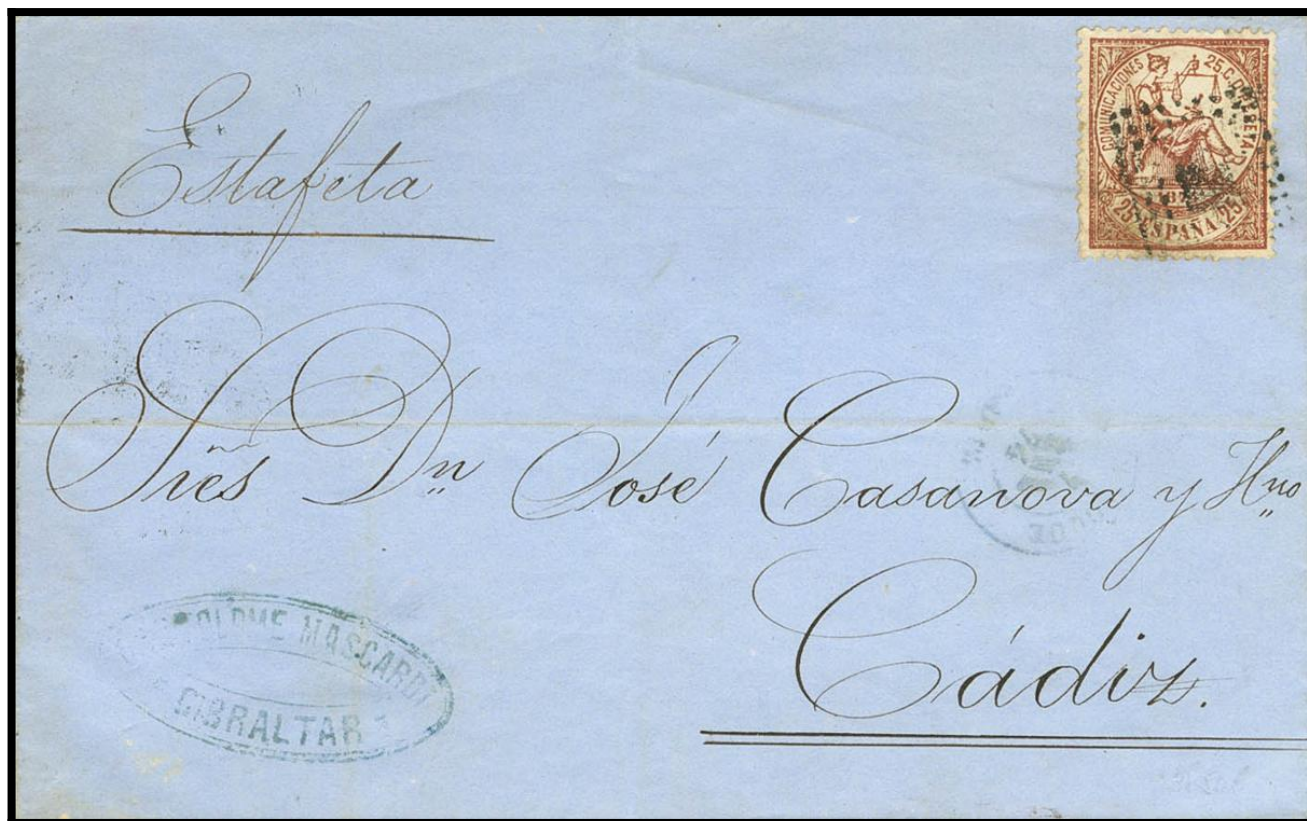 COMUNICACIONES 25 C. DE PESETA.
25 ESPAÑA 25
Estafeta
Sres Dn José Casanova y Hno
Cádiz.
MASCARDI
GIBRALTAR